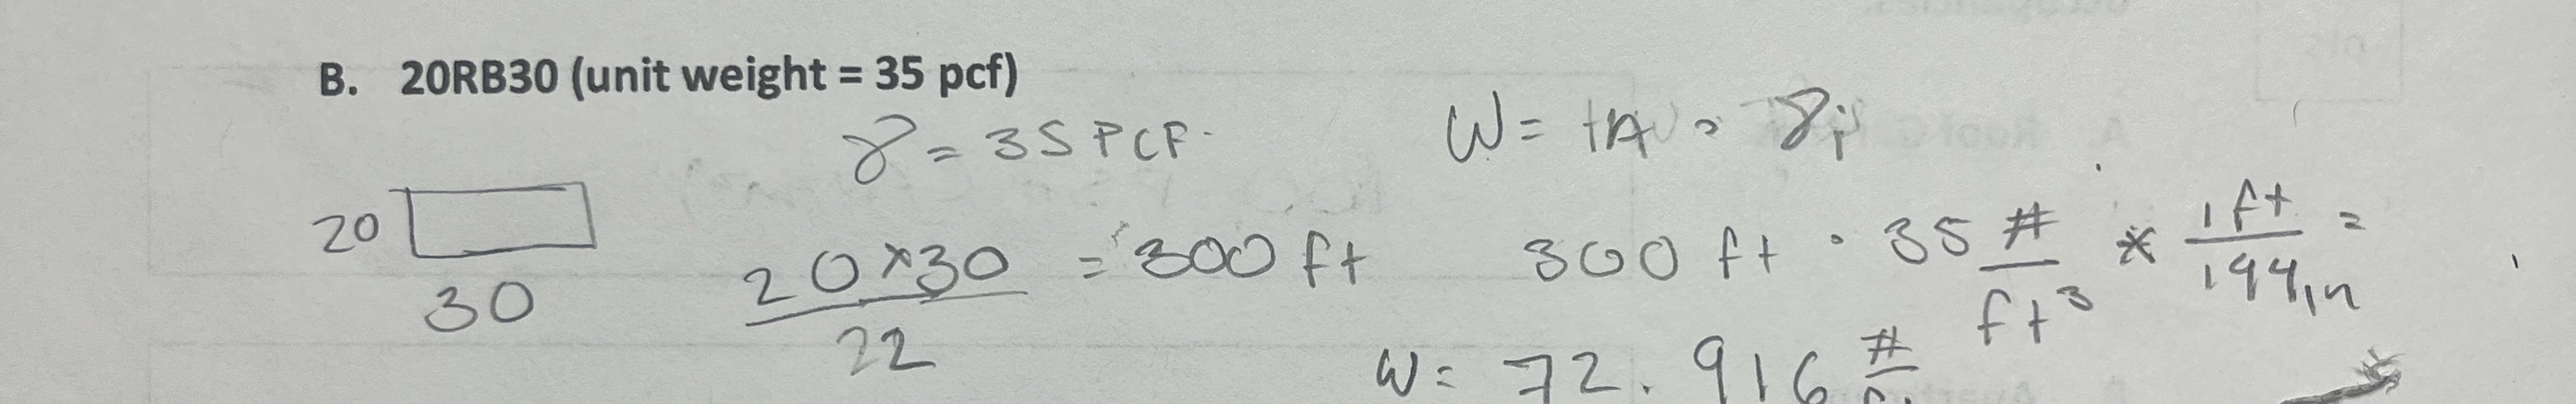 B. 20RB30 (unit weight = 35 pcf)
γ = 35 PCF.
W = tA = γi
20
30
20×30 / 22 = 300 ft
300 ft · 35 #/ft³ * 1ft/144in =
W = 72.916 #